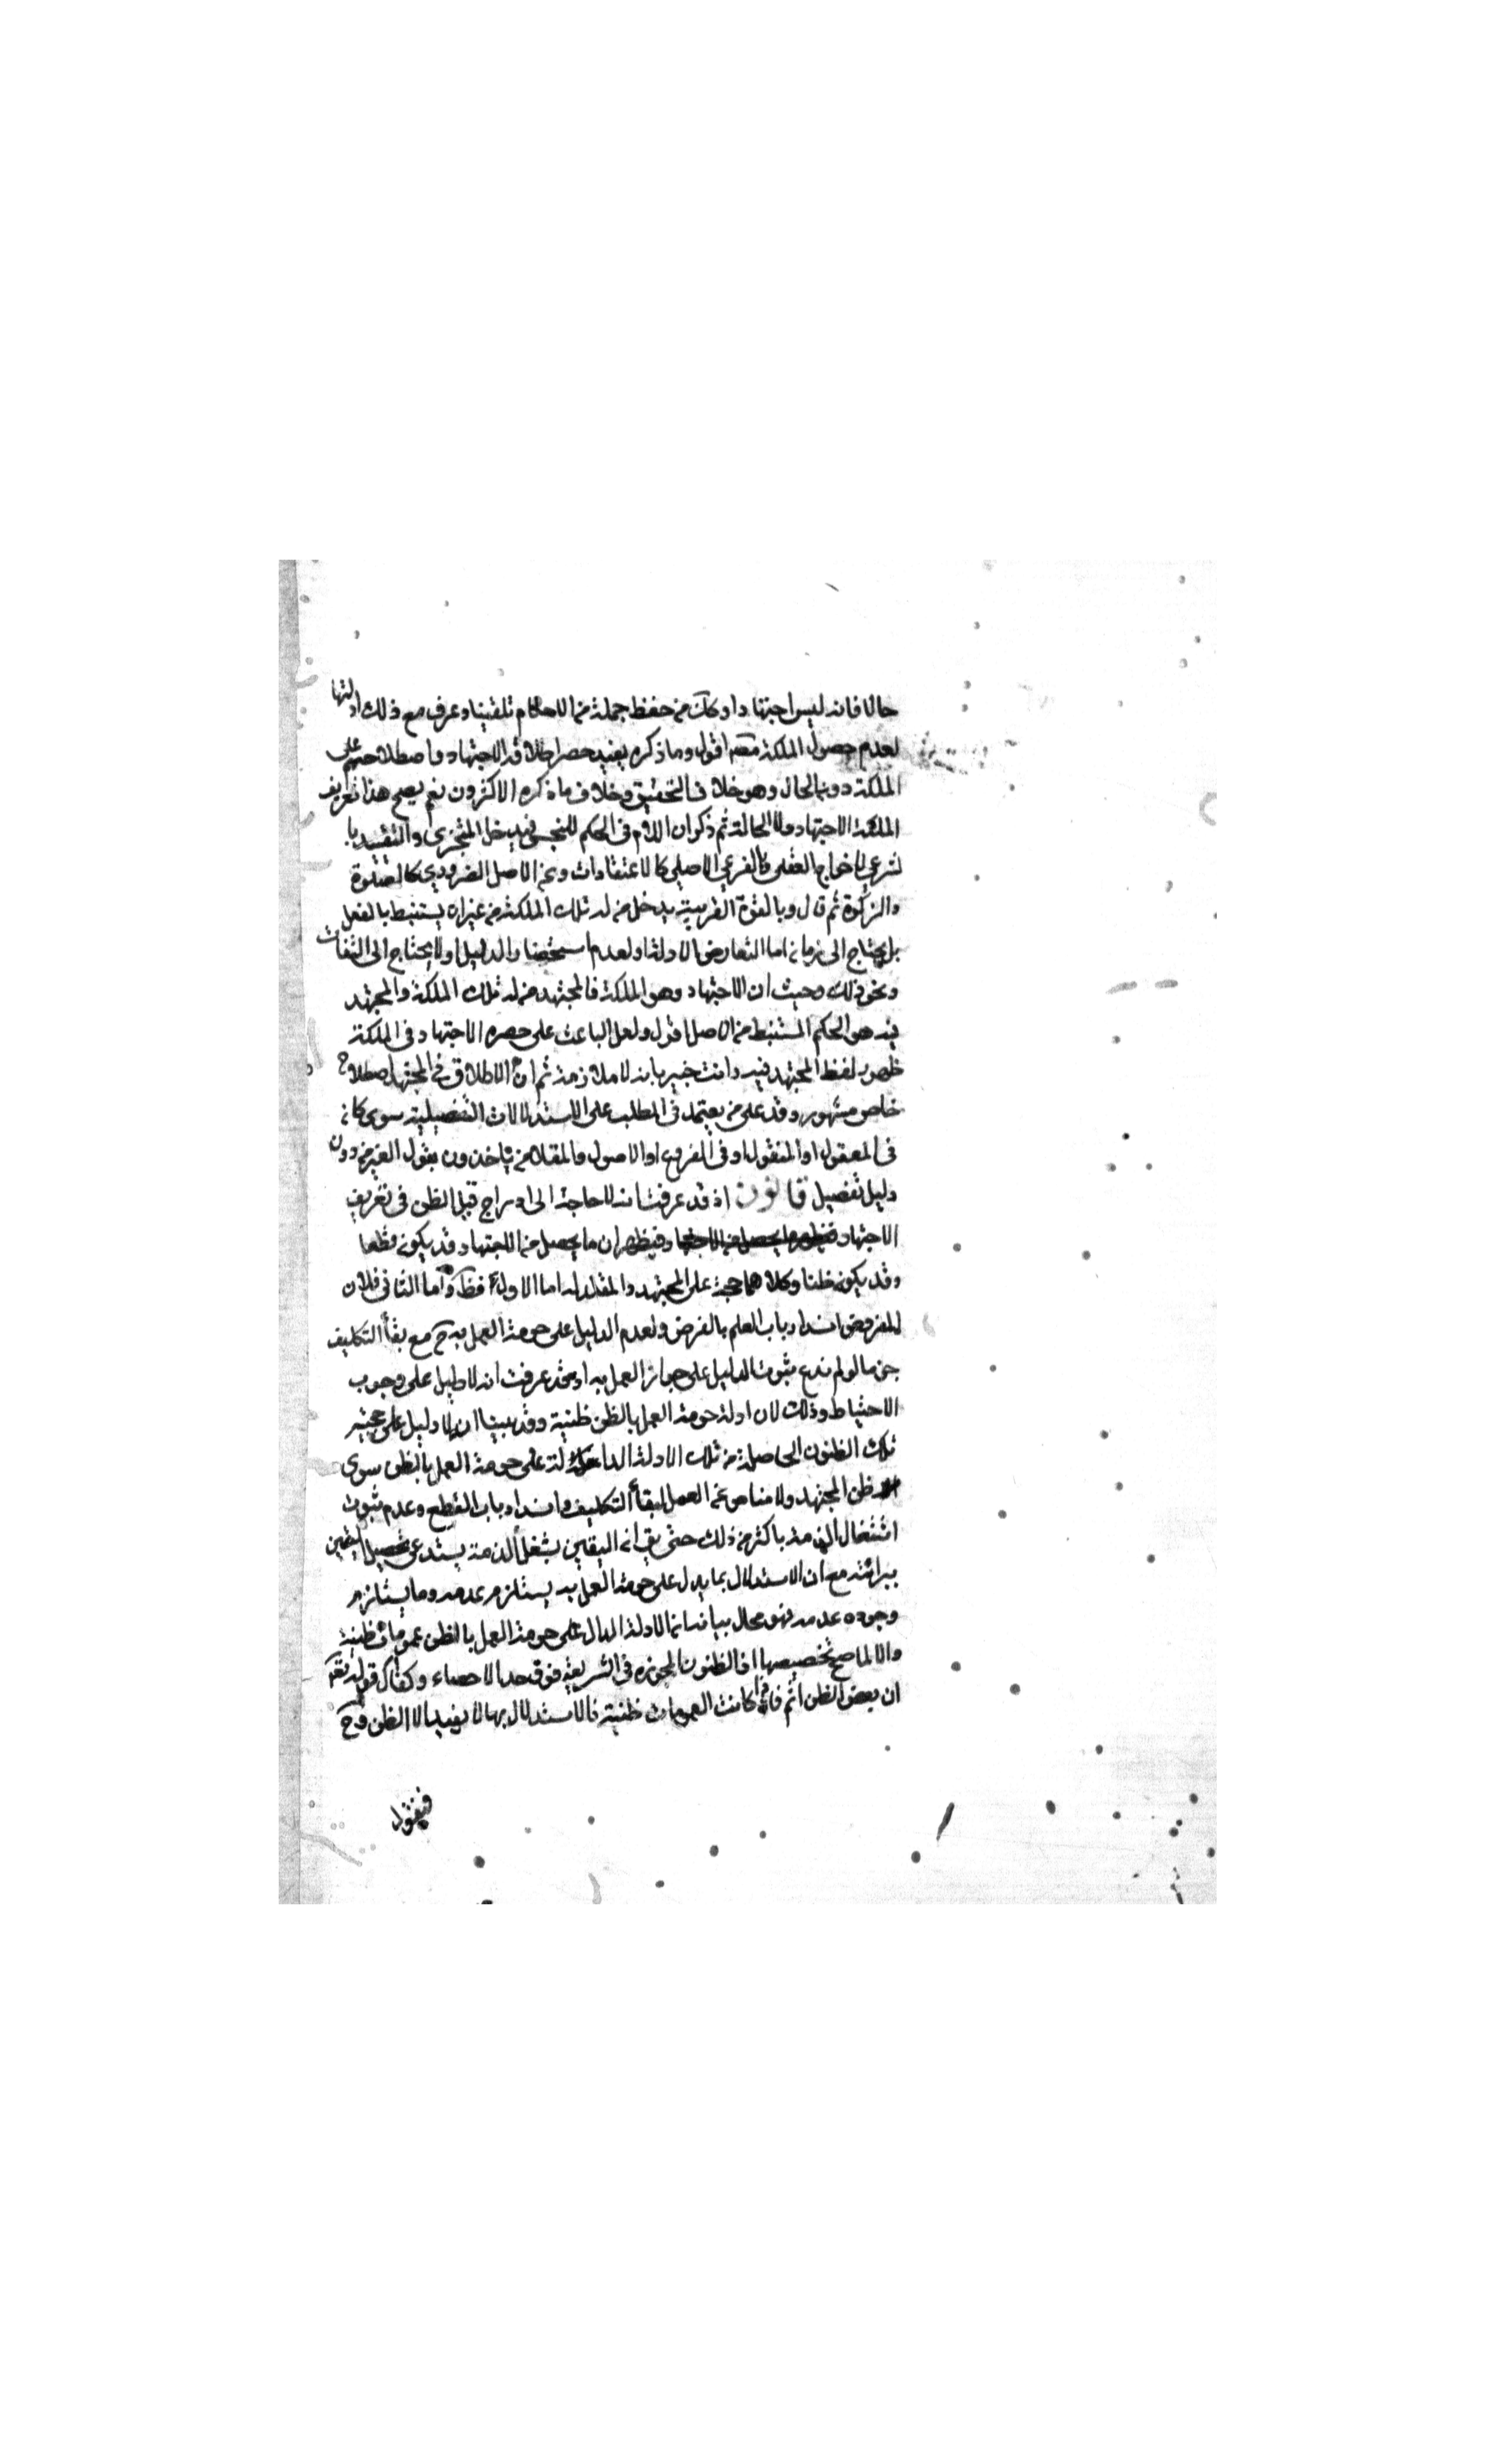 حالا فانه ليس اجتهادا وكان من حفظ جملة من الاحكام تلقينا وعرف مع ذلك ادلتها
لعدم حصول الملكة معه اقول وما ذكره يفيد حصر اطلاق الاجتهاد في اصطلاحهم على
الملكة دون الحال وهو خلاف التحقيق وخلاف ما ذكره الاكثرون نعم يصح هذا تعريف
الملكة الاجتهاد ولا الحالة ثم ذكر ان اللام في الحكم للجنس فيدخل المتجزى والتقييد با
لشرعي لاخراج العقلي كالفرعي الاصلي كالاعتقادات وعن الاصل الضروري كالصلوة
والزكوة ثم قال وبالقوة القريبة يدخل من له تلك الملكة من غير ان يستنبط بالفعل
بل يحتاج الى زمان اما لتعارض الادلة او لعدم استحضار الدليل او لا يحتاج الى التفات
ونحو ذلك وحيث ان الاجتهاد وهو الملكة فالمجتهد من له تلك الملكة والمجتهد
فيه هو الحكم المستنبط من الاصل اقول ولعل الباعث على حصره الاجتهاد في الملكة
ظهور لفظ المجتهد فيه وانت خبير بانه لا ملازمة ثم ان الاطلاق في المجتهد اصطلاح
خاص مشهور وقد على من يعتمد في المطلب على الاستدلالات التفصيلية سوى كان
في المعقول او المنقول او في الفروع او الاصول والمقلد من ياخذون بقول الغير من دون
دليل تفصيل قانون اذ قد عرفت انه لا حاجة الى ادراج قيد الظن في تعريف
الاجتهاد فيظهر ان ما يحصل من الاجتهاد قد يكون قطعا
وقد يكون ظنا وكلاهما حجة على المجتهد والمقلد له اما الاول فظ واما الثاني فلان
المفروض انسداد باب العلم بالفرض ولعدم الدليل على حرمة العمل به ح مع بقاء التكليف
جزما لو لم ندع ثبوت الدليل على جواز العمل به اذ قد عرفت انه لا دليل على وجوب
الاحتياط وذلك لان ادلة حرمة العمل بالظن ظنية وقد بينا ان لا دليل على حجية
تلك الظنون الحاصلة من تلك الادلة الدالة على حرمة العمل بالظن سوى
ظن المجتهد ولا مناص عن العمل لبقاء التكليف وانسداد باب القطع وعدم ثبوت
اشتغال الذمة باكثر من ذلك حتى يق ان اليقين بشغل الذمة يستدعي تحصيل اليقين
ببرائته مع ان الاستدلال بما يدل على حرمة العمل به يستلزم عدمه وما يستلزم
وجوده عدمه فهو محال بيانه ان الادلة الدال على حرمة العمل بالظن عمومات ظنية
والا لما صح تخصيصها اذ الظنون المجوزه في الشريعة فوق حد الاحصاء وكفاك قوله تعم
ان بعض الظن اثم فاذا كانت العمومات ظنية فالاستدلال بها لا يفيد الا الظن وح
فنقول